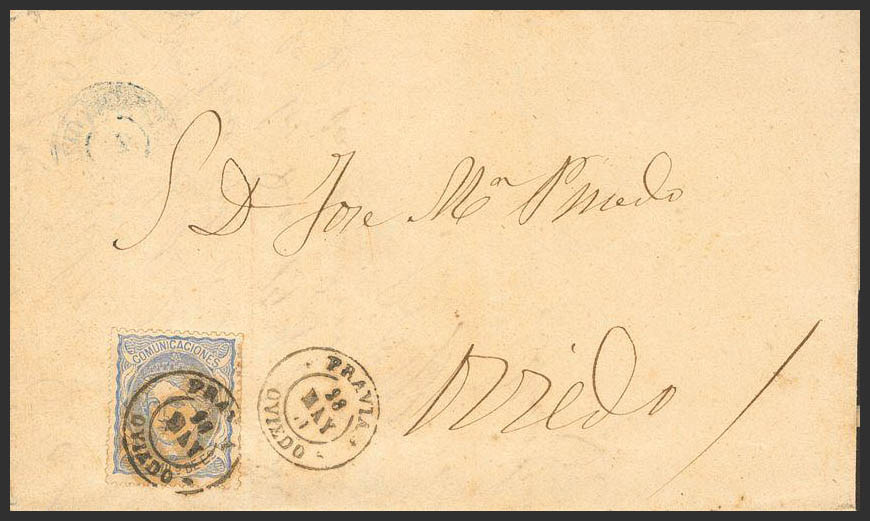 S D Jose Mª Pinedo
Oviedo
COMUNICACIONES
PRAVIA
28
MAY
OVIEDO
PRAVIA
28
MAY
OVIEDO